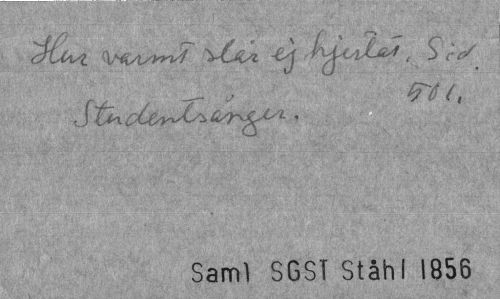 Hur varmt slår ej hjertat. Sid.
501.
Studentsånger.
Saml SGST Ståhl 1856